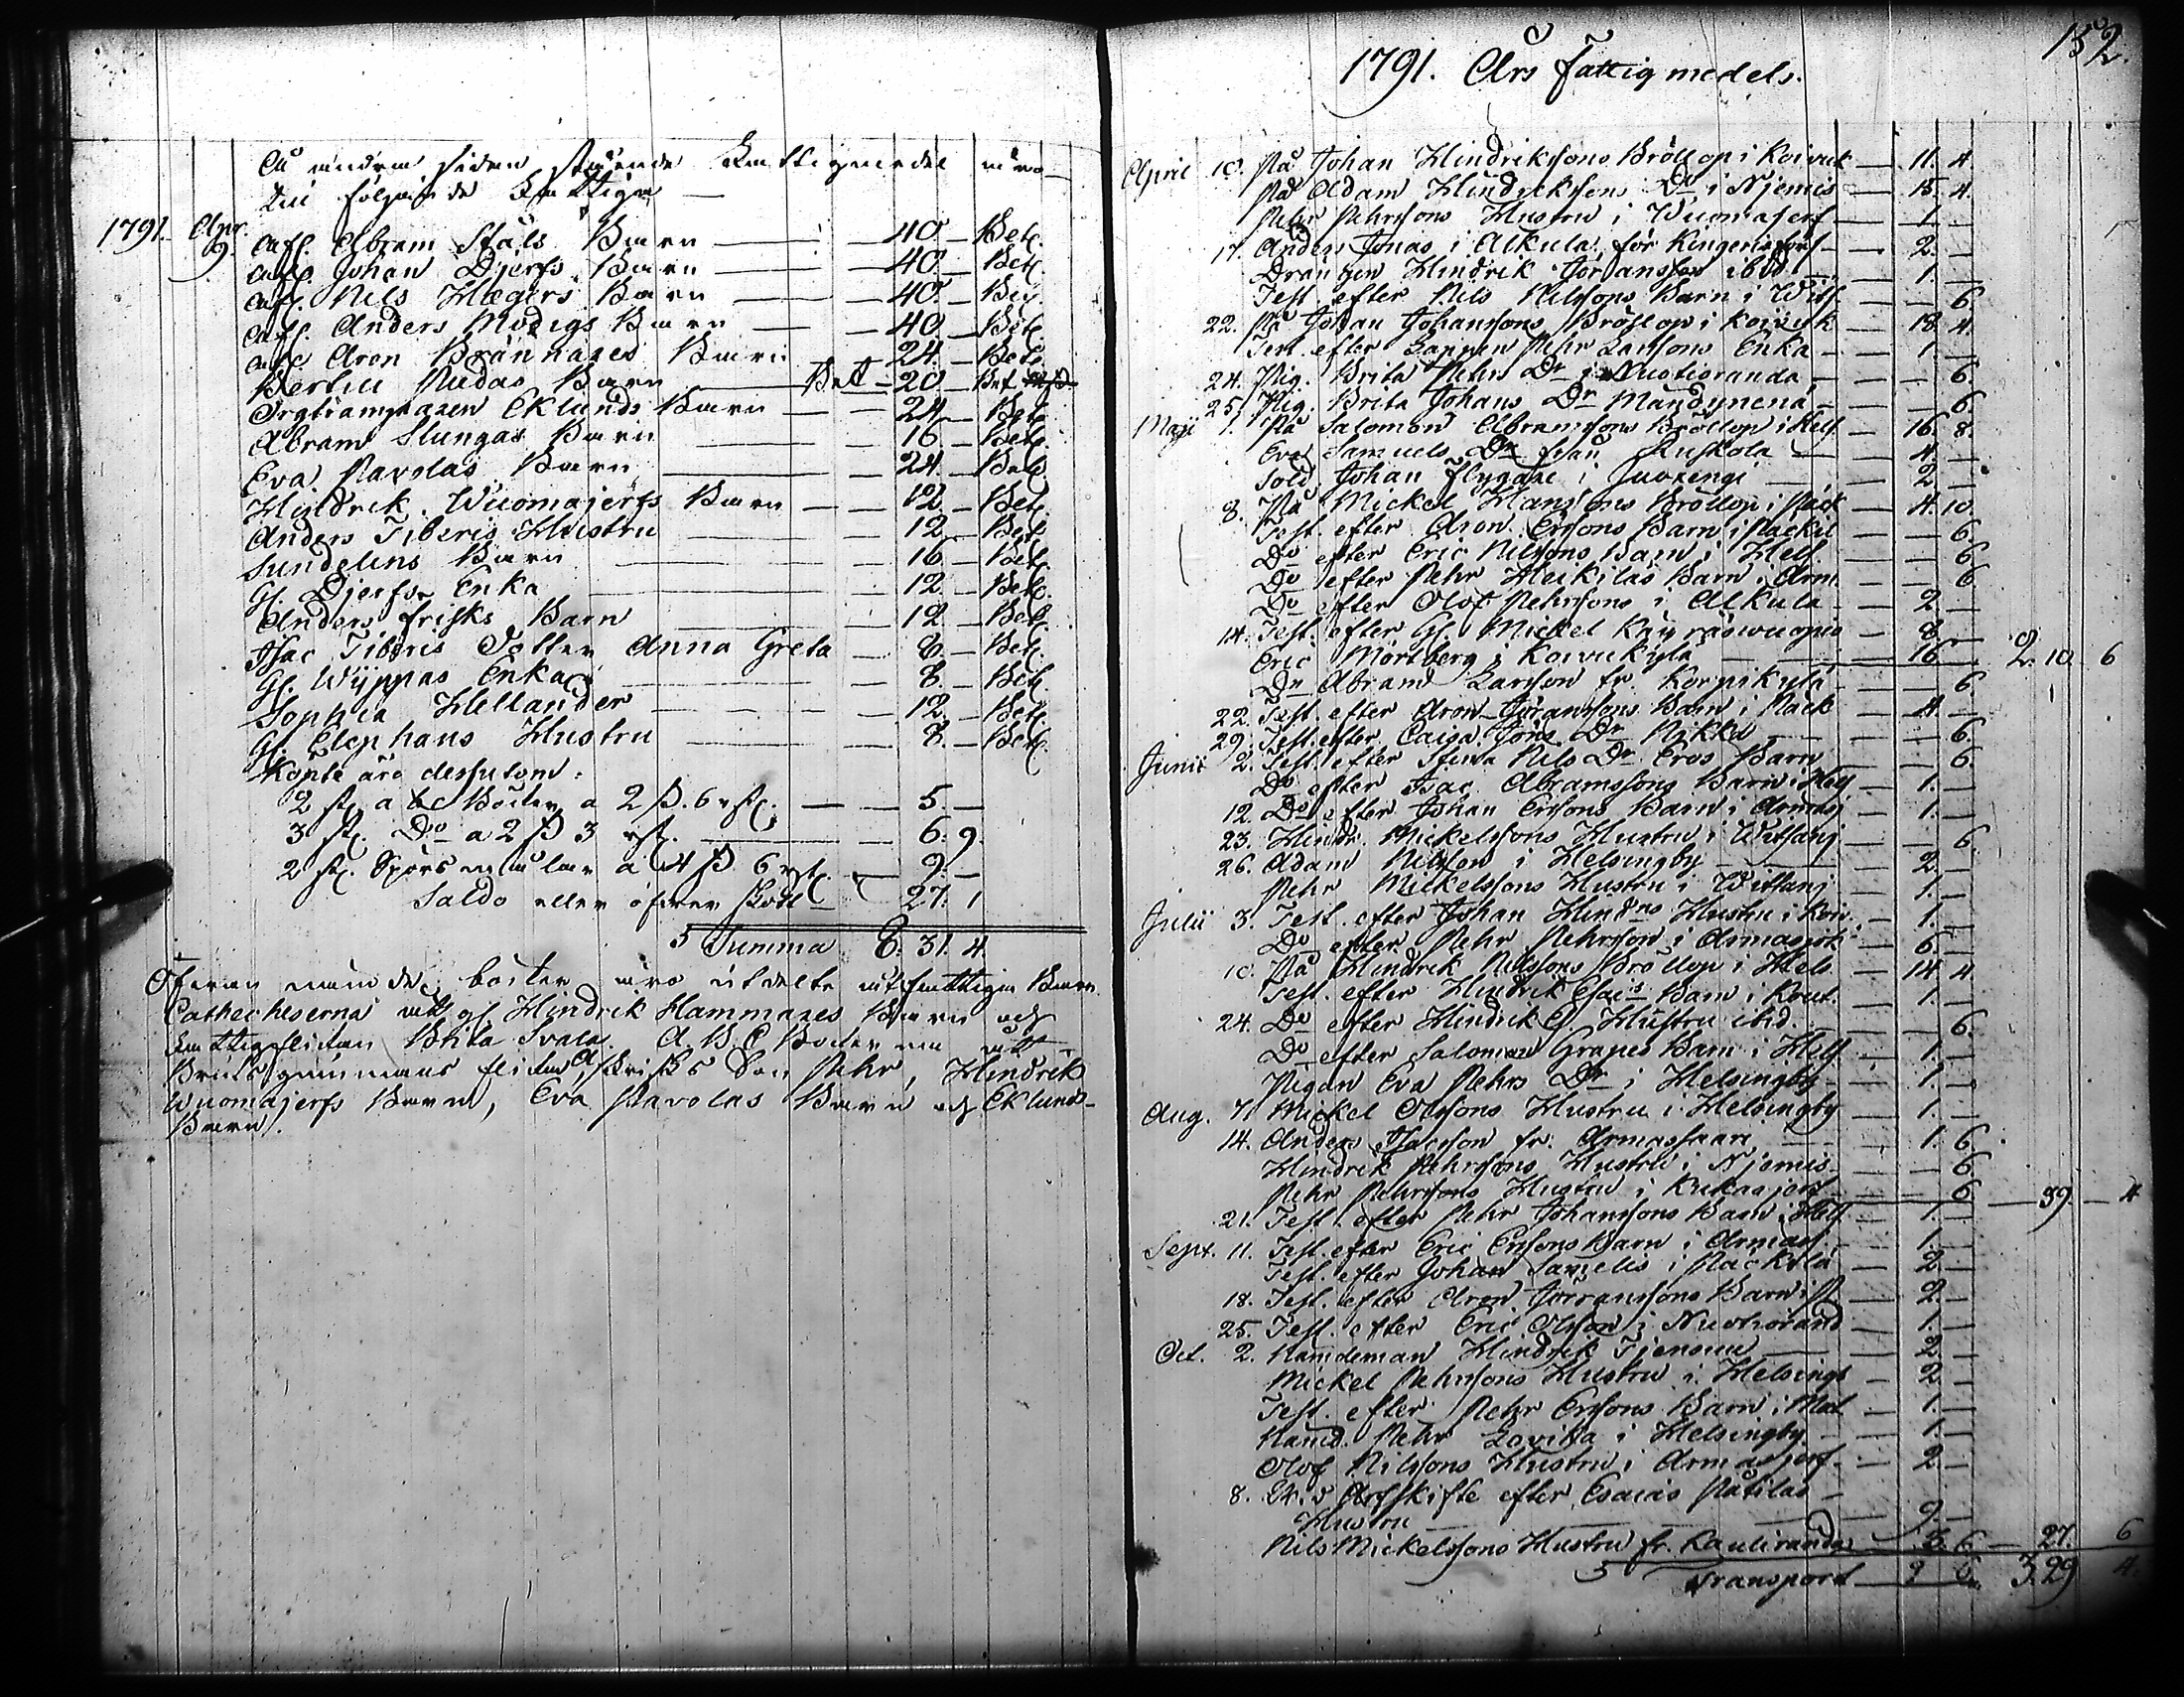 Å andra sidan stående Fattigmedel äro
till följande Fattiga
1791. Apr. 9. Afl. Abram Ståls Barn — 40. — Bet.
Afl. Johan Djerfs Barn — 40. — Bet.
Afl. Nils Hægers Barn — 40. — Bet.
Afl. Anders Modigs Barn — 40. — Bet.
Afl. Aron Brännares Barn — 24. — Bet.
Bertill Rudas Barn — Bet — 20. — Bet
Eklunds Barn — 24. — Bet.
Abram Slungas Barn — 16. — Bet.
Eva Pavolas Barn — 24. — Bet.
Hindrik Wuomajerfs Barn — 12. — Bet.
Anders Tiberis Hustru — 12. — Bet.
Sundelins Barn — 16. — Bet.
Gl. Djerfs Enka — 12. — Bet.
Anders Frisks Barn — 12. — Bet.
Isac Tiberis Dotter Anna Greta — 8. — Bet.
Gl. Wyppas Enka — 8. — Bet.
Sophia Hellander — 12. — Bet.
Gl. Elephans Hustru — 8. — Bet.
Köpte äro dessutom:
2 st. a b c Böcker a 2 ß. 6 rst. — 5. —
3 st. Do a 2 ß 3 rst. — 6. 9.
2 st. Spörsmålar a 4 ß 6 rst. — 9. —
Saldo eller öfver skott — 27. 1
Summa 8. 31. 4.
Öfvan böcker äro utdelte åt fattiga Barn.
Catecheserna åt gl. Hindrik Hammares Barn och
fattigflickan Brita Svala. A. B. C Böckerna åt
Frisks Son Pehr, Hindrik
Wuomajerfs Barn, Eva Pavolas Barn och Eklunds
Barn.
152.
1791. Års Fattigmedels.
April 10. På Johan Hindrikssons Bröllop i Koivuk — 11. 4
På Adam Hindrikssons Do i Njemis — 15. 4.
Pehr Pehrssons Hustru i Wuomajerf — 1. —
17. Anders Jonas i Alkula för — 2. —
Drängen Hindrik Göransson ibid. — 1. —
Test. efter Nils Nilssons Barn i Wits. — 6.
22. På Johan Johanssons Bröllop i Koivuk — 18. 4.
Test. efter Lappen Pehr Larssons Enka — 1. —
24. Pig. Brita Pehrs Dr i Nuotioranda — 6.
25. Pig. Brita Johans Dr — 6.
Maji 1. På Salomon Abramssons Bröllop i Hels — 16. 8.
Eva Samuels Dr från Ruskola — 4. —
Sold. Johan Flygare i Juoxengi — 2. —
8. På Mickel Hanssons Bröllop i Päck — 4. 10.
Test. efter Aron Erssons Barn i Päckil — 6.
Do efter Eric Nilssons Barn i Hels — 6.
Do efter Pehr Heikilas Barn i Arm. — 6.
Do efter Olof Pehrssons i Alkula — 2. —
14. Test. efter Gl. Mickel — 8. —
Eric Mörtberg i Koivukylä — 16. — 2. 10. 6
Dr Abram Larsson fr. Korpikylä — 6.
22. Test. efter Aron Göranssons Barn i Päck — 4. —
29. Test. efter Caisa Jöns Dr Rikka — 6.
Junii 2. Test. efter Stina Nils Dr Eros Barn — 6.
Do efter Isac Abramssons Barn i Hels — 1. —
12. Do efter Johan Erssons Barn i Armasj — 1. —
23. Hindr. Mickelssons Hustru i Witsanj — 6.
26. Adam Nilsson i Helsingby — 2. —
Pehr Mickelssons Hustru i Witsanj — 1. —
Julii 3. Test. efter Johan Hindrns Hustru i Koiv. — 1. —
Do efter Pehr Pehrsson i Armasjok — 6. —
10. På Hindrik Nilssons Bröllop i Hels — 14. 4.
Test. efter Hindrik Esais Barn i — 1. —
24. Do efter Hindrik Hustru ibid. — 6.
Do efter Salomon Grapes Barn i Hels — 1. —
Pigan Eva Pehrs Dr i Helsingby — 1. —
Aug. 7. Mickel Olssons Hustru i Helsingby — 1. —
14. Anders Isacsson fr. Armassaari — 1. 6.
Hindrik Pehrssons Hustru i Njemis — 6.
Pehr Pehrssons Hustru i Kukasjerf — 6 — 39. — 4
21. Test. efter Pehr Johanssons Barn i Hels — 1. —
Sept. 11. Test. efter Eric Erssons Barn i Armasj — 1. —
Test. efter Johan Samelis i Päckilä — 2. —
18. Test. efter Aron Görranssons Barn i P — 2. —
25. Test. efter Eric Olsson i Nuotiorand — 1. —
Oct. 2. Nämdeman Hindrik — 2. —
Mickel Pehrssons Hustru i Helsingb — 2. —
Test. efter Pehr Erssons Barn i Mat — 1. —
Nämd. Pehr Lovika i Helsingby — 1. —
Olof Nilssons Hustru i Armasjerf — 2. —
8. Arfskifte efter Esaias Påtilas
Hustru — 9. —
Nils Mickelssons Hustru fr. Kauliranda — 3. 6 — 27. 6
Transport — 3. 29. 4.